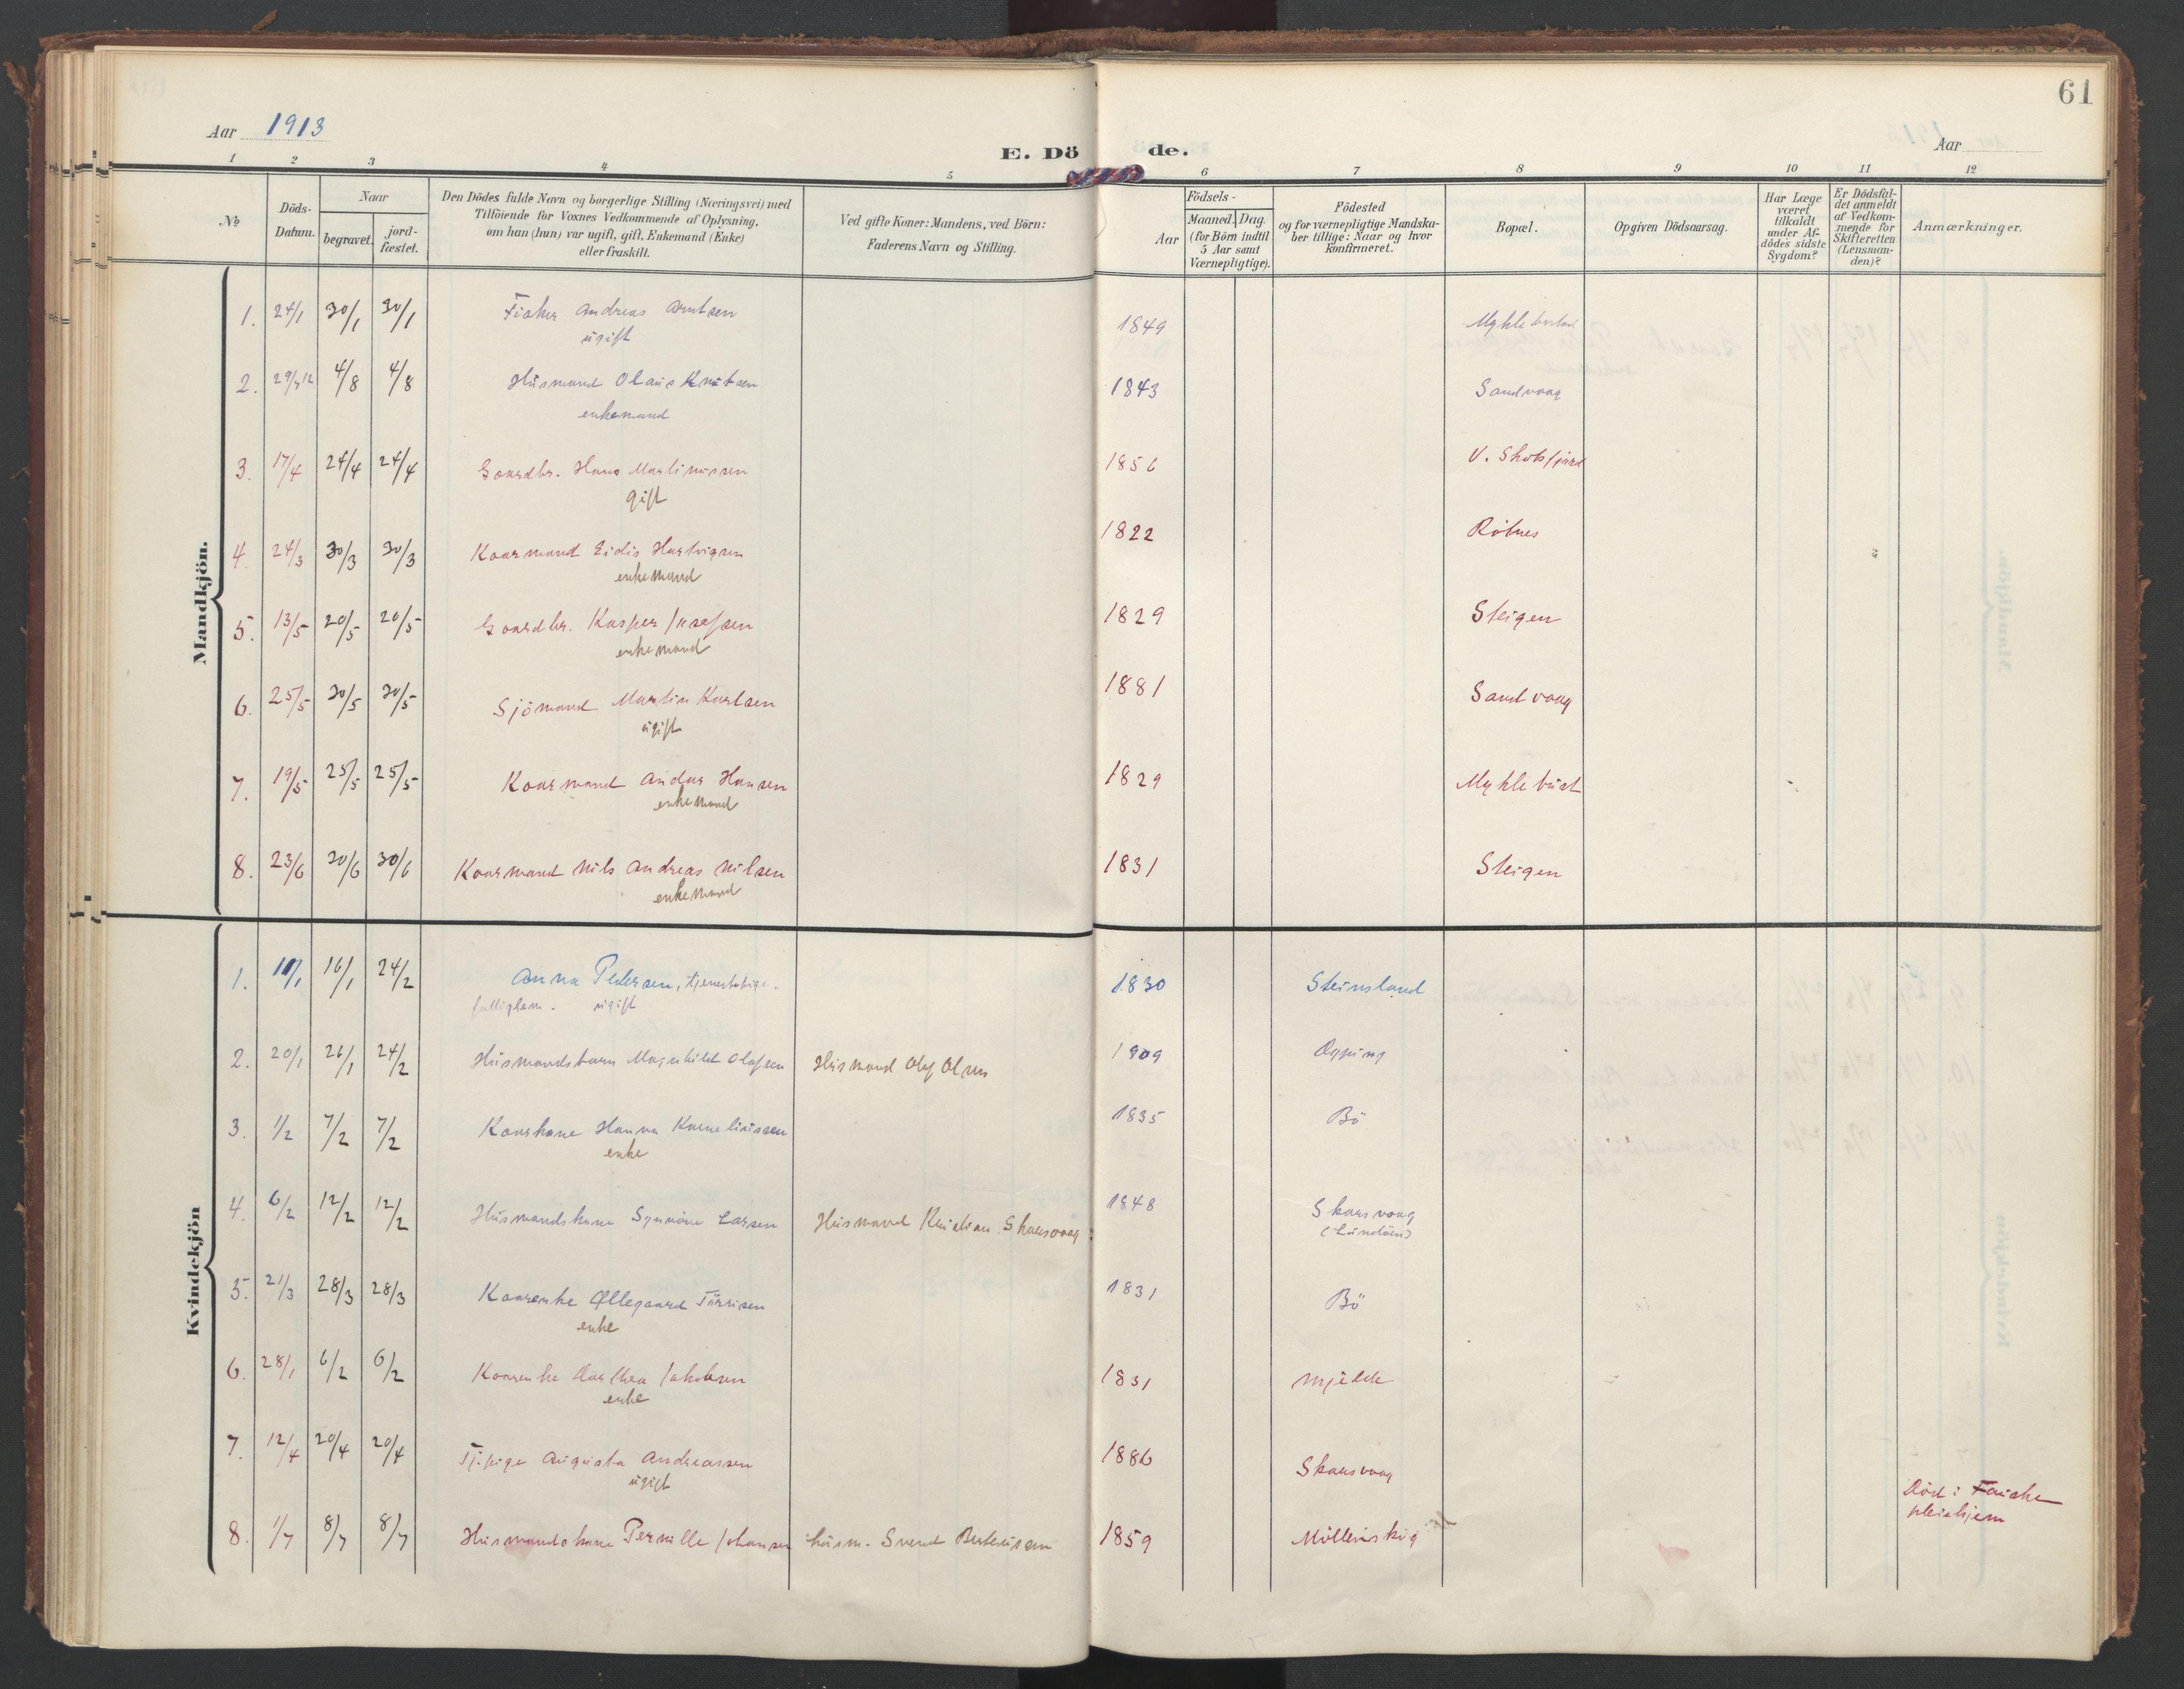 61
Aar 1913
E. Dö
de.
Aar
1 2 3 4 5 6 7 8 9 10 11 12
No
Döds-
Datum.
Naar
begravet.
jord-
fæstet.
Den Dödes fulde Navn og borgerlige Stilling (Næringsvei) med
Tilföiende for Voxnes Vedkommende af Oplysning,
om han (hun) var ugift, gift, Enkemand (Enke)
eller fraskilt.
Ved gifte Koner: Mandens, ved Börn:
Faderens Navn og Stilling.
Födsels-
Aar
Maaned. Dag.
(for Börn indtil
5 Aar samt
Værnepligtige).
Födested
og for værnepligtige Mandska-
ber tillige: Naar og hvor
Konfirmeret.
Bopæl.
Opgiven Dödsaarsag.
Har Læge
været
tilkaldt
under Af-
dödes sidste
Sygdom?
Er Dödsfal-
det anmeldt
af Vedkom-
mende for
Skifteretten
(Lensman-
den)?
Anmærkninger.
Mandkjön.
1. 24/1 30/1 30/1 Fisker Andreas Arntsen 1849
ugift
2. 4/8 4/8 Husmand Olaus Knutsen 1843 Sandvaag
enkemand
3. 17/4 24/4 24/4 Gaardbr. Hans Martinussen 1856 V. Skotsfjord
gift
4. 24/3 30/3 30/3 Kaarmand Eidis Hartvigsen 1822 Rötnes
enkemand
5. 13/5 20/5 20/5 Gaardbr. Kasper Josefsen 1829 Steigen
enkemand
6. 25/5 30/5 30/5 Sjömand Martin Karlsen 1881 Sandvaag
ugift
7. 19/5 25/5 25/5 Kaarmand Andas Hansen 1829 Myklebust
enkemand
8. 23/6 30/6 30/6 Kaarmand Nils Andreas Nilsen 1831 Steigen
enkemand
Kvindekjön
1. 16/1 24/2 Anna Pedersen, tjenestepige. 1830 Steinsland
fattiglem. ugift
2. 20/1 26/1 24/2 Husmandsbarn Magnhild Olafsen Husmand Olaf Olsen 1909
3. 1/2 7/2 7/2 Kaarkone Hanna Korneliussen 1835 Bö
enke
4. 6/2 12/2 12/2 Husmandskone Synnöve Larsen Husmand Kristian Skaarsvaag 1848 Skaarsvaag
(Lundöen)
5. 21/3 28/3 28/3 Kaarenke Ollegaard Törrisen 1831 Bö
enke
6. 28/1 6/2 6/2 Kaarenke Dorthea Jakobsen 1831 Mjelde
enke
7. 12/4 20/4 20/4 Tj.pige Augusta Andreassen 1886 Skaarsvaag
ugift
8. 1/7 8/7 8/7 Husmandskone Pernille Johansen husm. Svend Berteusen 1859 Död i Fauske
pleiehjem